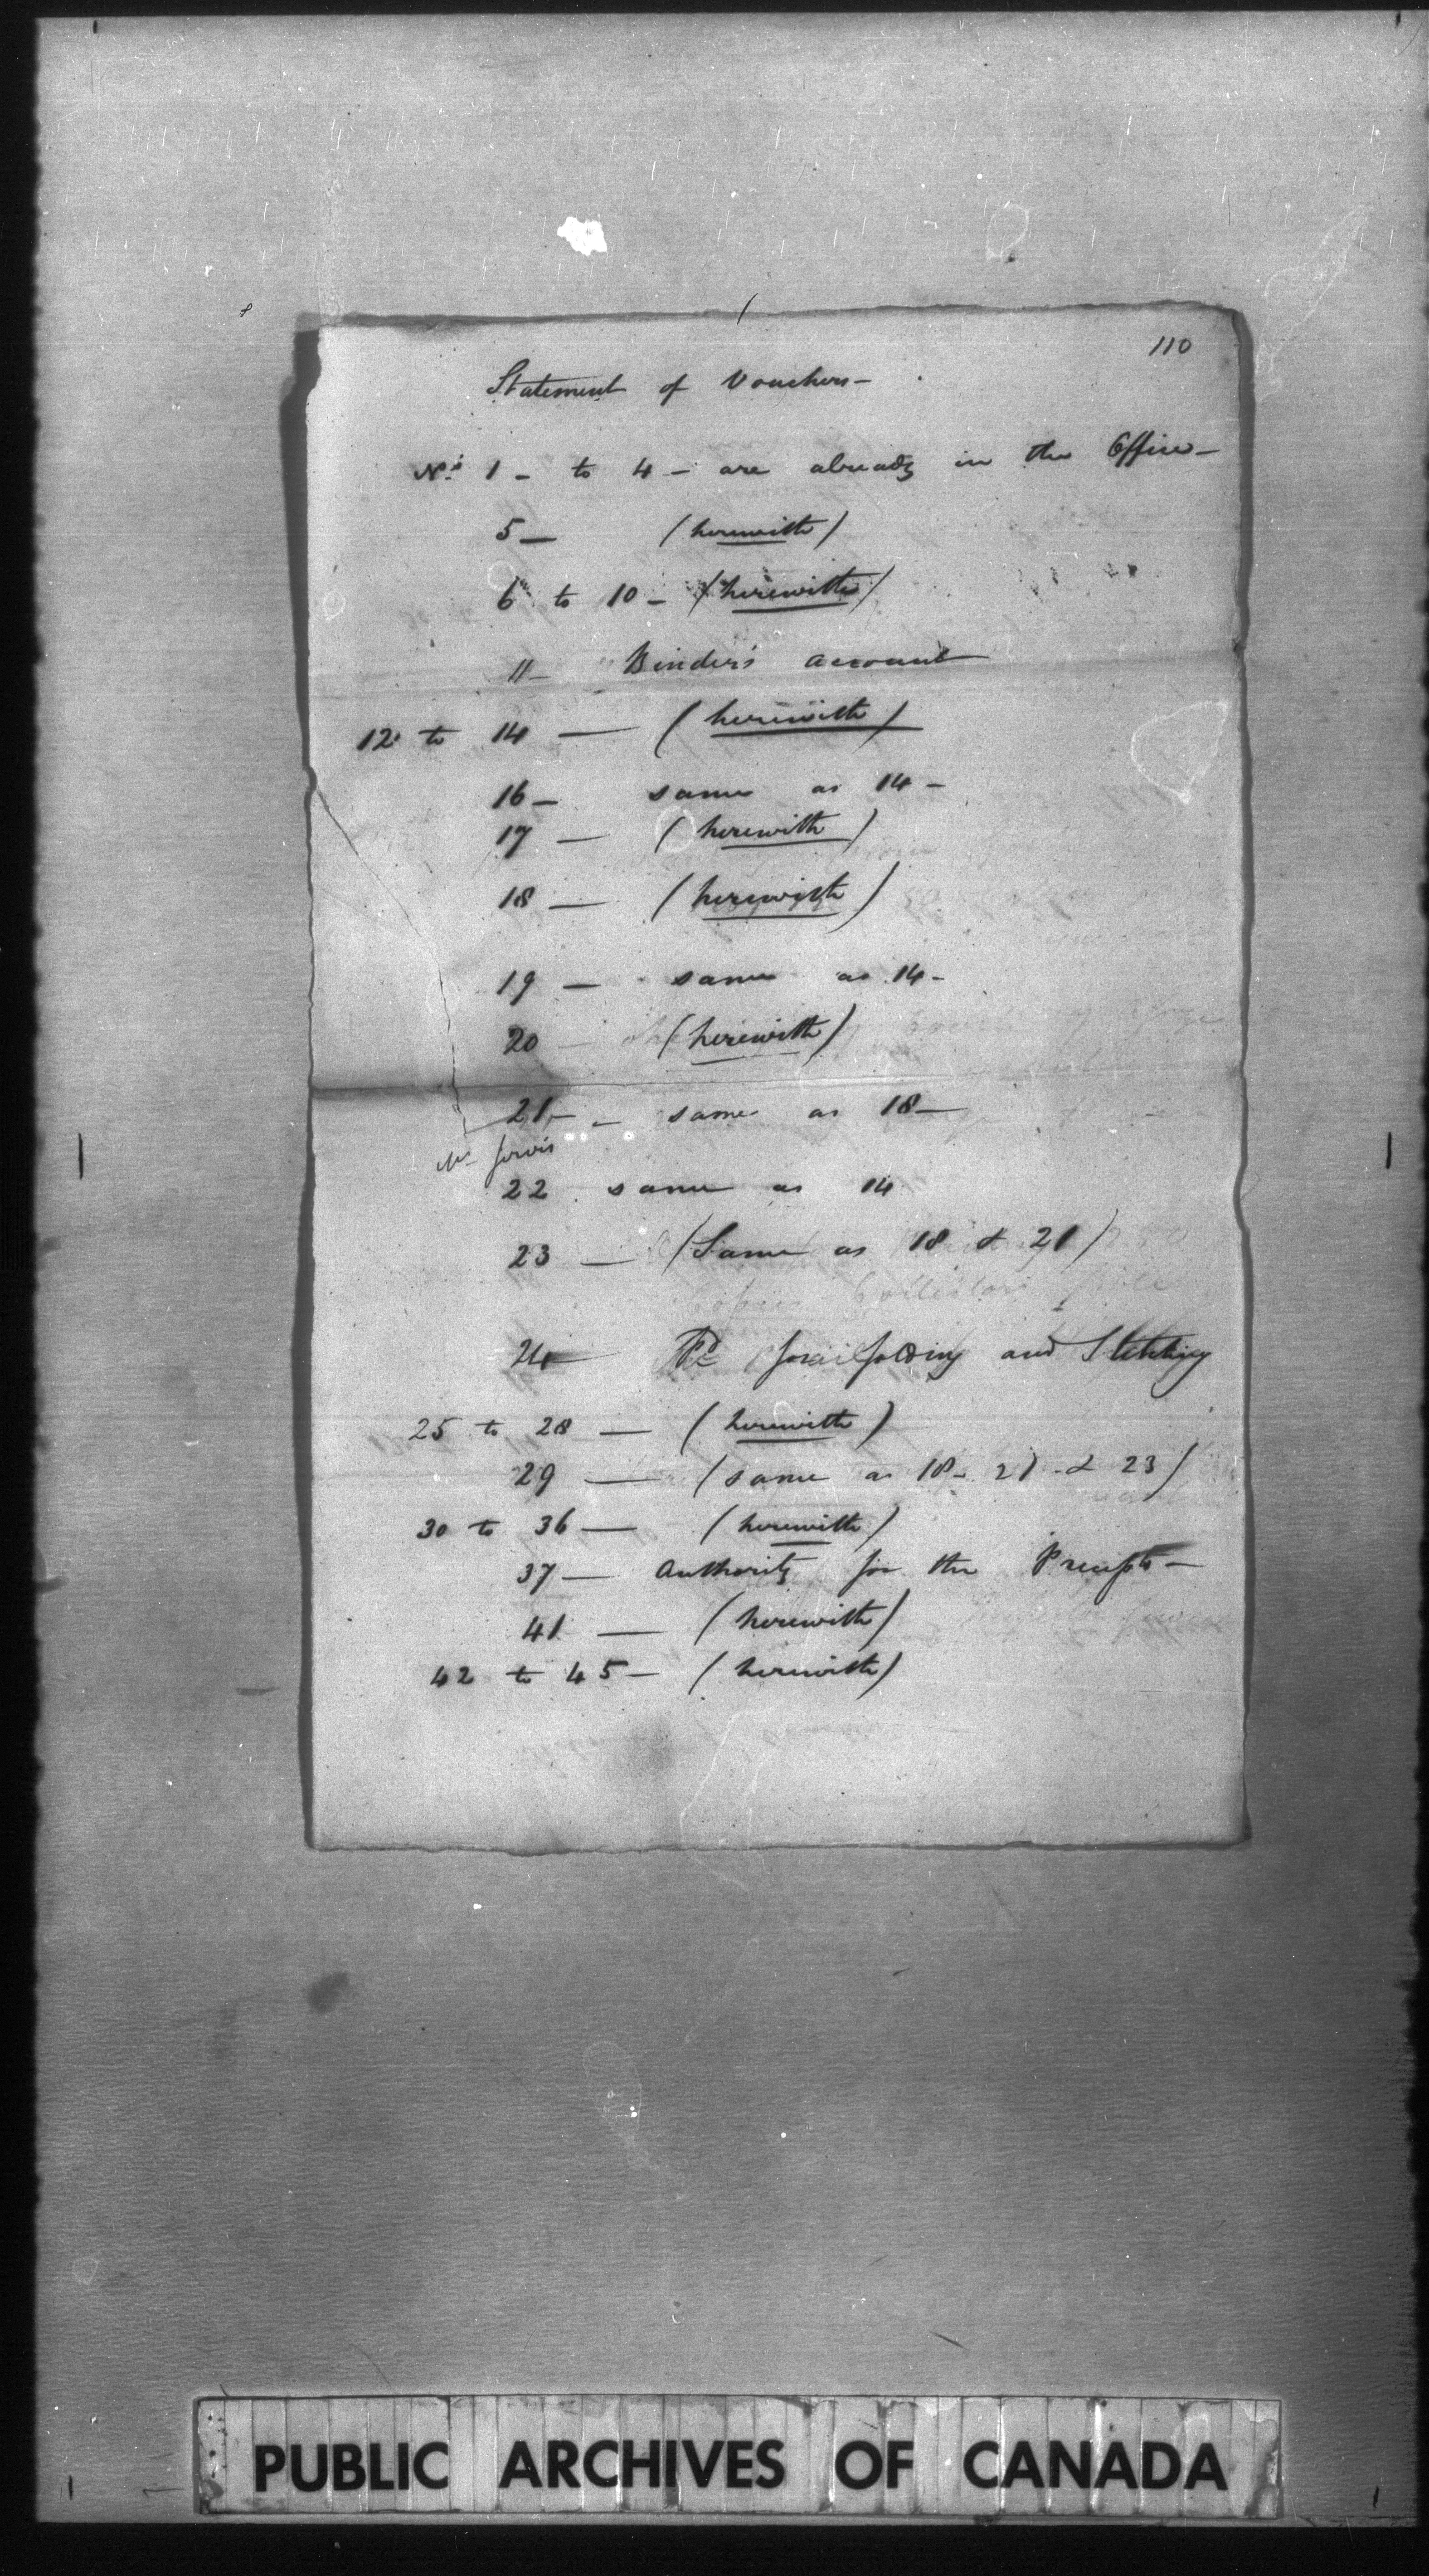 110
Statement of Vouchers -
No.s 1 - to 4 - are already in the Office -
5 - (herewith)
6 to 10 - (herewith)
11 - Binder's account
12 to 14 - (herewith)
16 - same as 14 -
17 - (herewith)
18 - (herewith)
19 - same as 14 -
20 - (herewith)
21 - - same as 18 -
Mr Jarvis
22 same as 14
23 - (Same as 18 & 21)
24 - Pd for folding and Stitching
25 to 28 - (herewith)
29 - (same as 18 - 21 - & 23)
30 to 36 - (herewith)
37 - Authority for the Precepts -
41 - (herewith)
42 to 45 - (herewith)
PUBLIC ARCHIVES OF CANADA